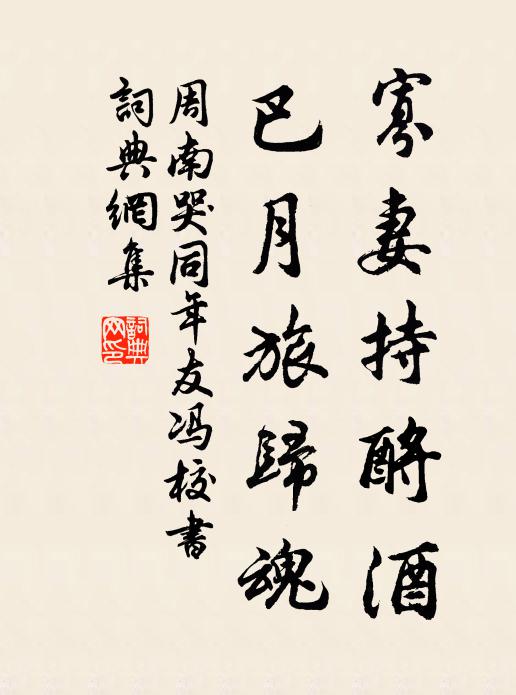 寡妻持酹酒
巴月旅歸魂
周南哭同年友冯校書
詞典網集
詞典
网印